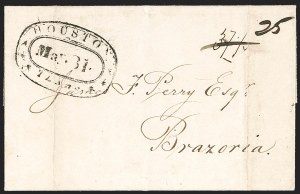 37½ 25
HOUSTON
May 31
TEXAS
James F. Perry Esqr.
Brazoria.